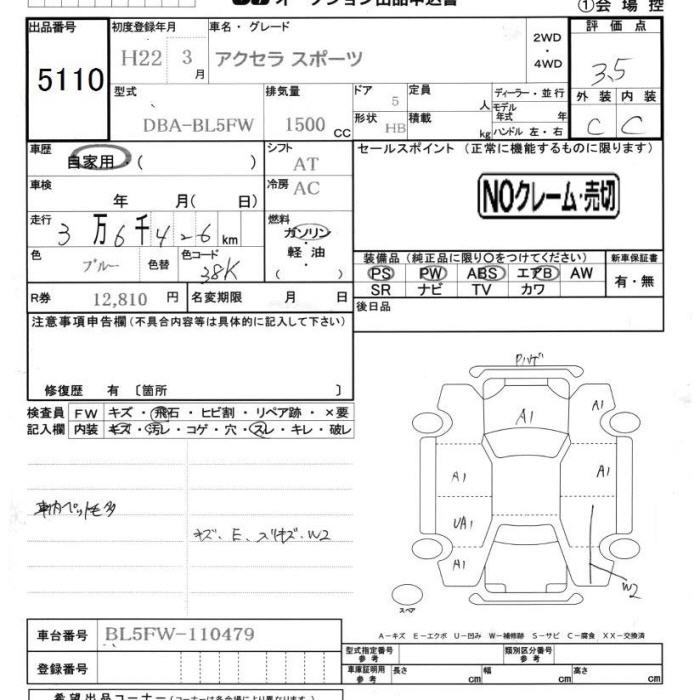 オークション出品申込書
①会場控
出品番号 5110
初度登録年月 H22 3月
車名・グレード アクセラ スポーツ
2WD・4WD
評価点 3.5
外装 内装
C C
型式 DBA-BL5FW
排気量 1500 CC
ドア 5
形状 HB
定員 人
積載 kg
ディーラー・並行
モデル年式 年
ハンドル 左・右
車歴 自家用・( )
シフト AT
セールスポイント (正常に機能するものに限ります)
NOクレーム・売切
車検 年 月( 日)
冷房 AC
走行 3万6千426km
燃料 ガソリン
軽油
( )
色 ブルー
色替
色コード 38K
装備品 (純正品に限り〇をつけてください)
PS PW ABS エアB AW
SR ナビ TV カワ
新車保証書
有・無
R券 12,810円
名変期限 月 日
後日品
注意事項申告欄 (不具合内容等は具体的に記入して下さい)
修復歴 有 〔箇所 〕
検査員 FW キズ・飛石・ヒビ割・リペア跡・×要
記入欄 内装 キズ・汚レ・コゲ・穴・スレ・キレ・破レ
車内ペット毛多
キズ、E、スリキズ、W2
Pハゲ
A1
A1
A1
A1
UA1
A1
A1
W2
スペア
A－キズ E－エクボ U－凹み W－補修跡 S－サビ C－腐食 XX－交換済
車台番号 BL5FW-110479
型式指定番号 参考
類別区分番号 参考
登録番号
車庫証明用 参考 長さ cm 幅 cm 高さ cm
希望出品コーナー (コーナーは各会場により異なります)